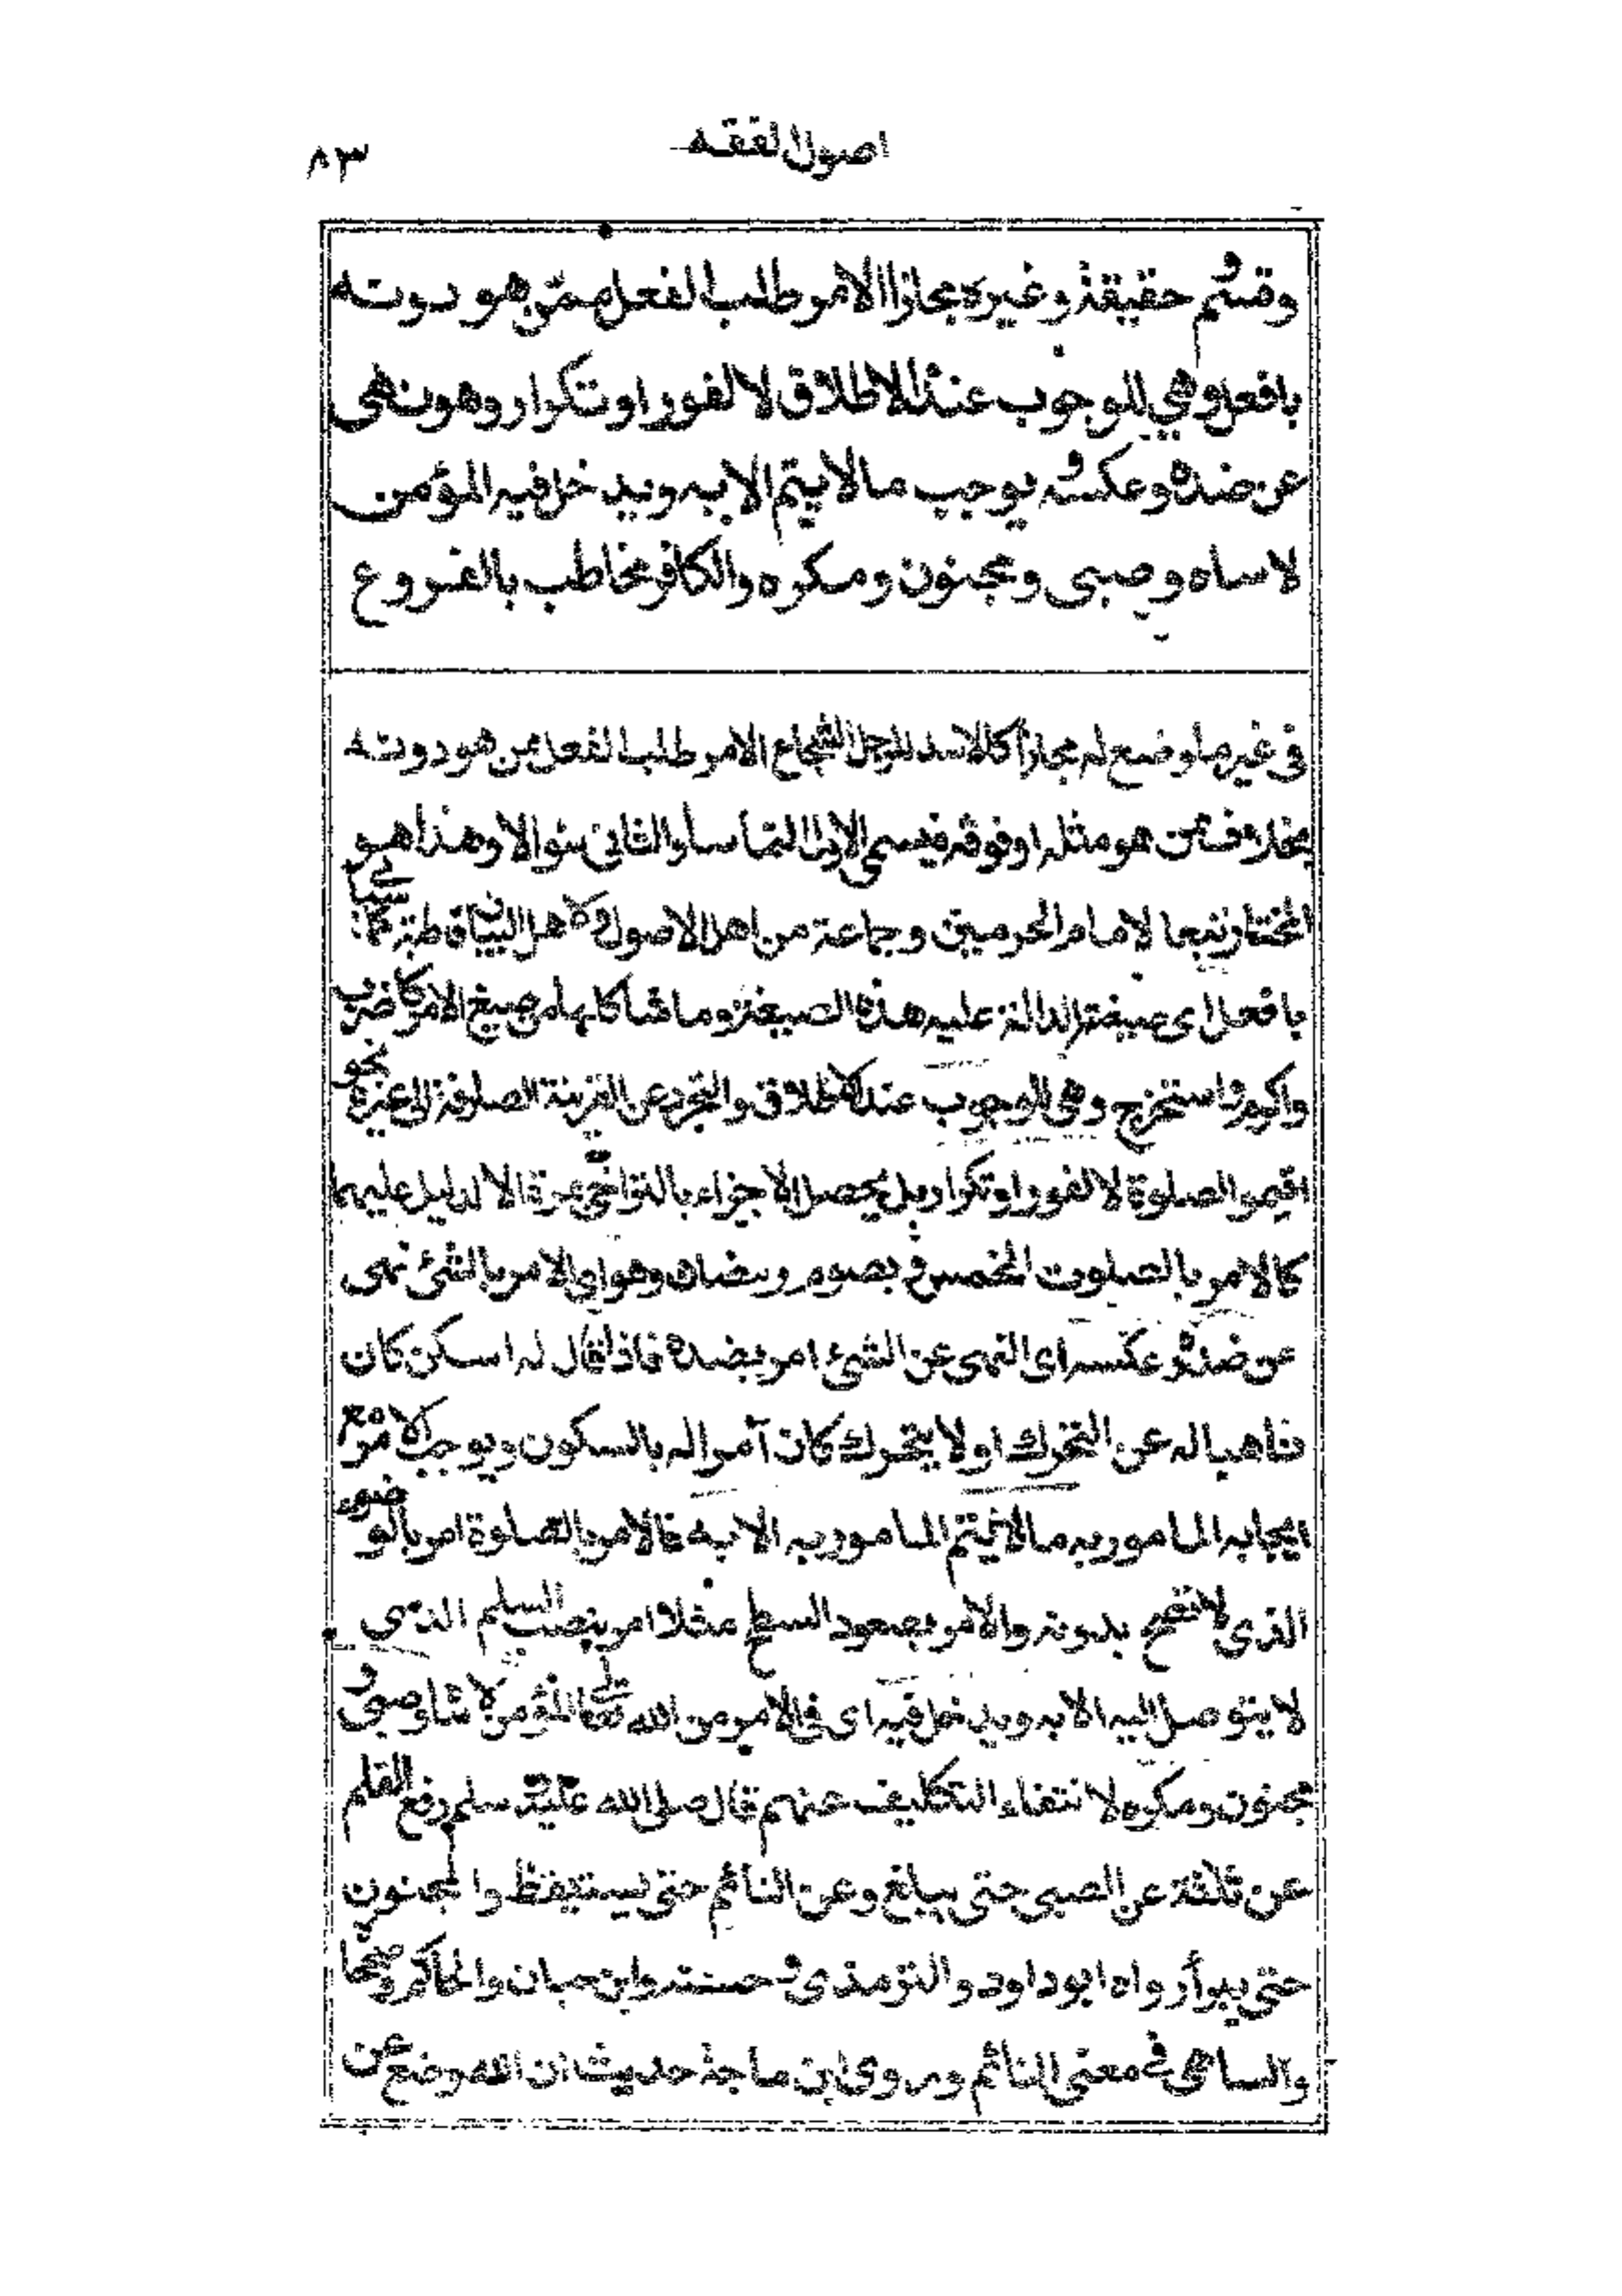 اصول الفقه
٨٣
وقسم حقيقة وغيره مجازا الامر طلب الفعل ممن هو دونه
بافعل وهي للوجوب عند الاطلاق لا لفور او تكرار وهو نهي
عن ضده وعكسه يوجب ما لا يتم الا به ويدخل فيه المؤمن
لا ساه وصبي ومجنون ومكره والكافر مخاطب بالفروع
في غير ما وضع له مجازا كالاسد للرجل الشجاع الامر طلب الفعل ممن هو دونه
بخلاف من هو مثله او فوقه فيسمى الاول التماسا والثاني سوالا وهذا هو
المختار تبعا لامام الحرمين وجماعة من اهل الاصول ولاهل البيان قاطبة
بافعل اى صيغته الدالة عليه هذه الصيغة وما شاكلها من صيغ الامر كاضرب
واكرم واستخرج وهى للوجوب عند الاطلاق والتجرد عن القرينة الصارفة الى غيره نحو
اقيموا الصلوة لا لفور او تكرار بل يحصل الاجزاء بالتراخي ومرة الا لدليل عليهما
كالامر بالصلوت الخمس وبصوم رمضان وهو اى الامر بالشئ نهى
عن ضده وعكسه اى النهى عن الشئ امر بضده فاذا قال له اسكن كان
ناهيا له عن التحرك او لا يتحرك كان آمرا له بالسكون ويوجب الامر مع
ايجابه المامور به ما لا يتم المامور به الا به فالامر بالصلوة امر بالوضوء
الذى لا تصح بدونه والامر بصعود السطح مثلا امر بنصب السلم الذى
لا يتوصل اليه الا به ويدخل فيه اى في الامر من الله تعالى المؤمن لا ساه وصبي و
مجنون ومكره لانتفاء التكليف عنهم قال صلى الله عليه وسلم رفع القلم
عن ثلثة عن الصبى حتى يبلغ وعن النائم حتى يستيقظ والمجنون
حتى يبرأ رواه ابو داود والترمذى وحسنه وابن حبان والحاكم وصححاه
والساهى في معنى النائم وروى ابن ماجة حديث ان الله وضع عن